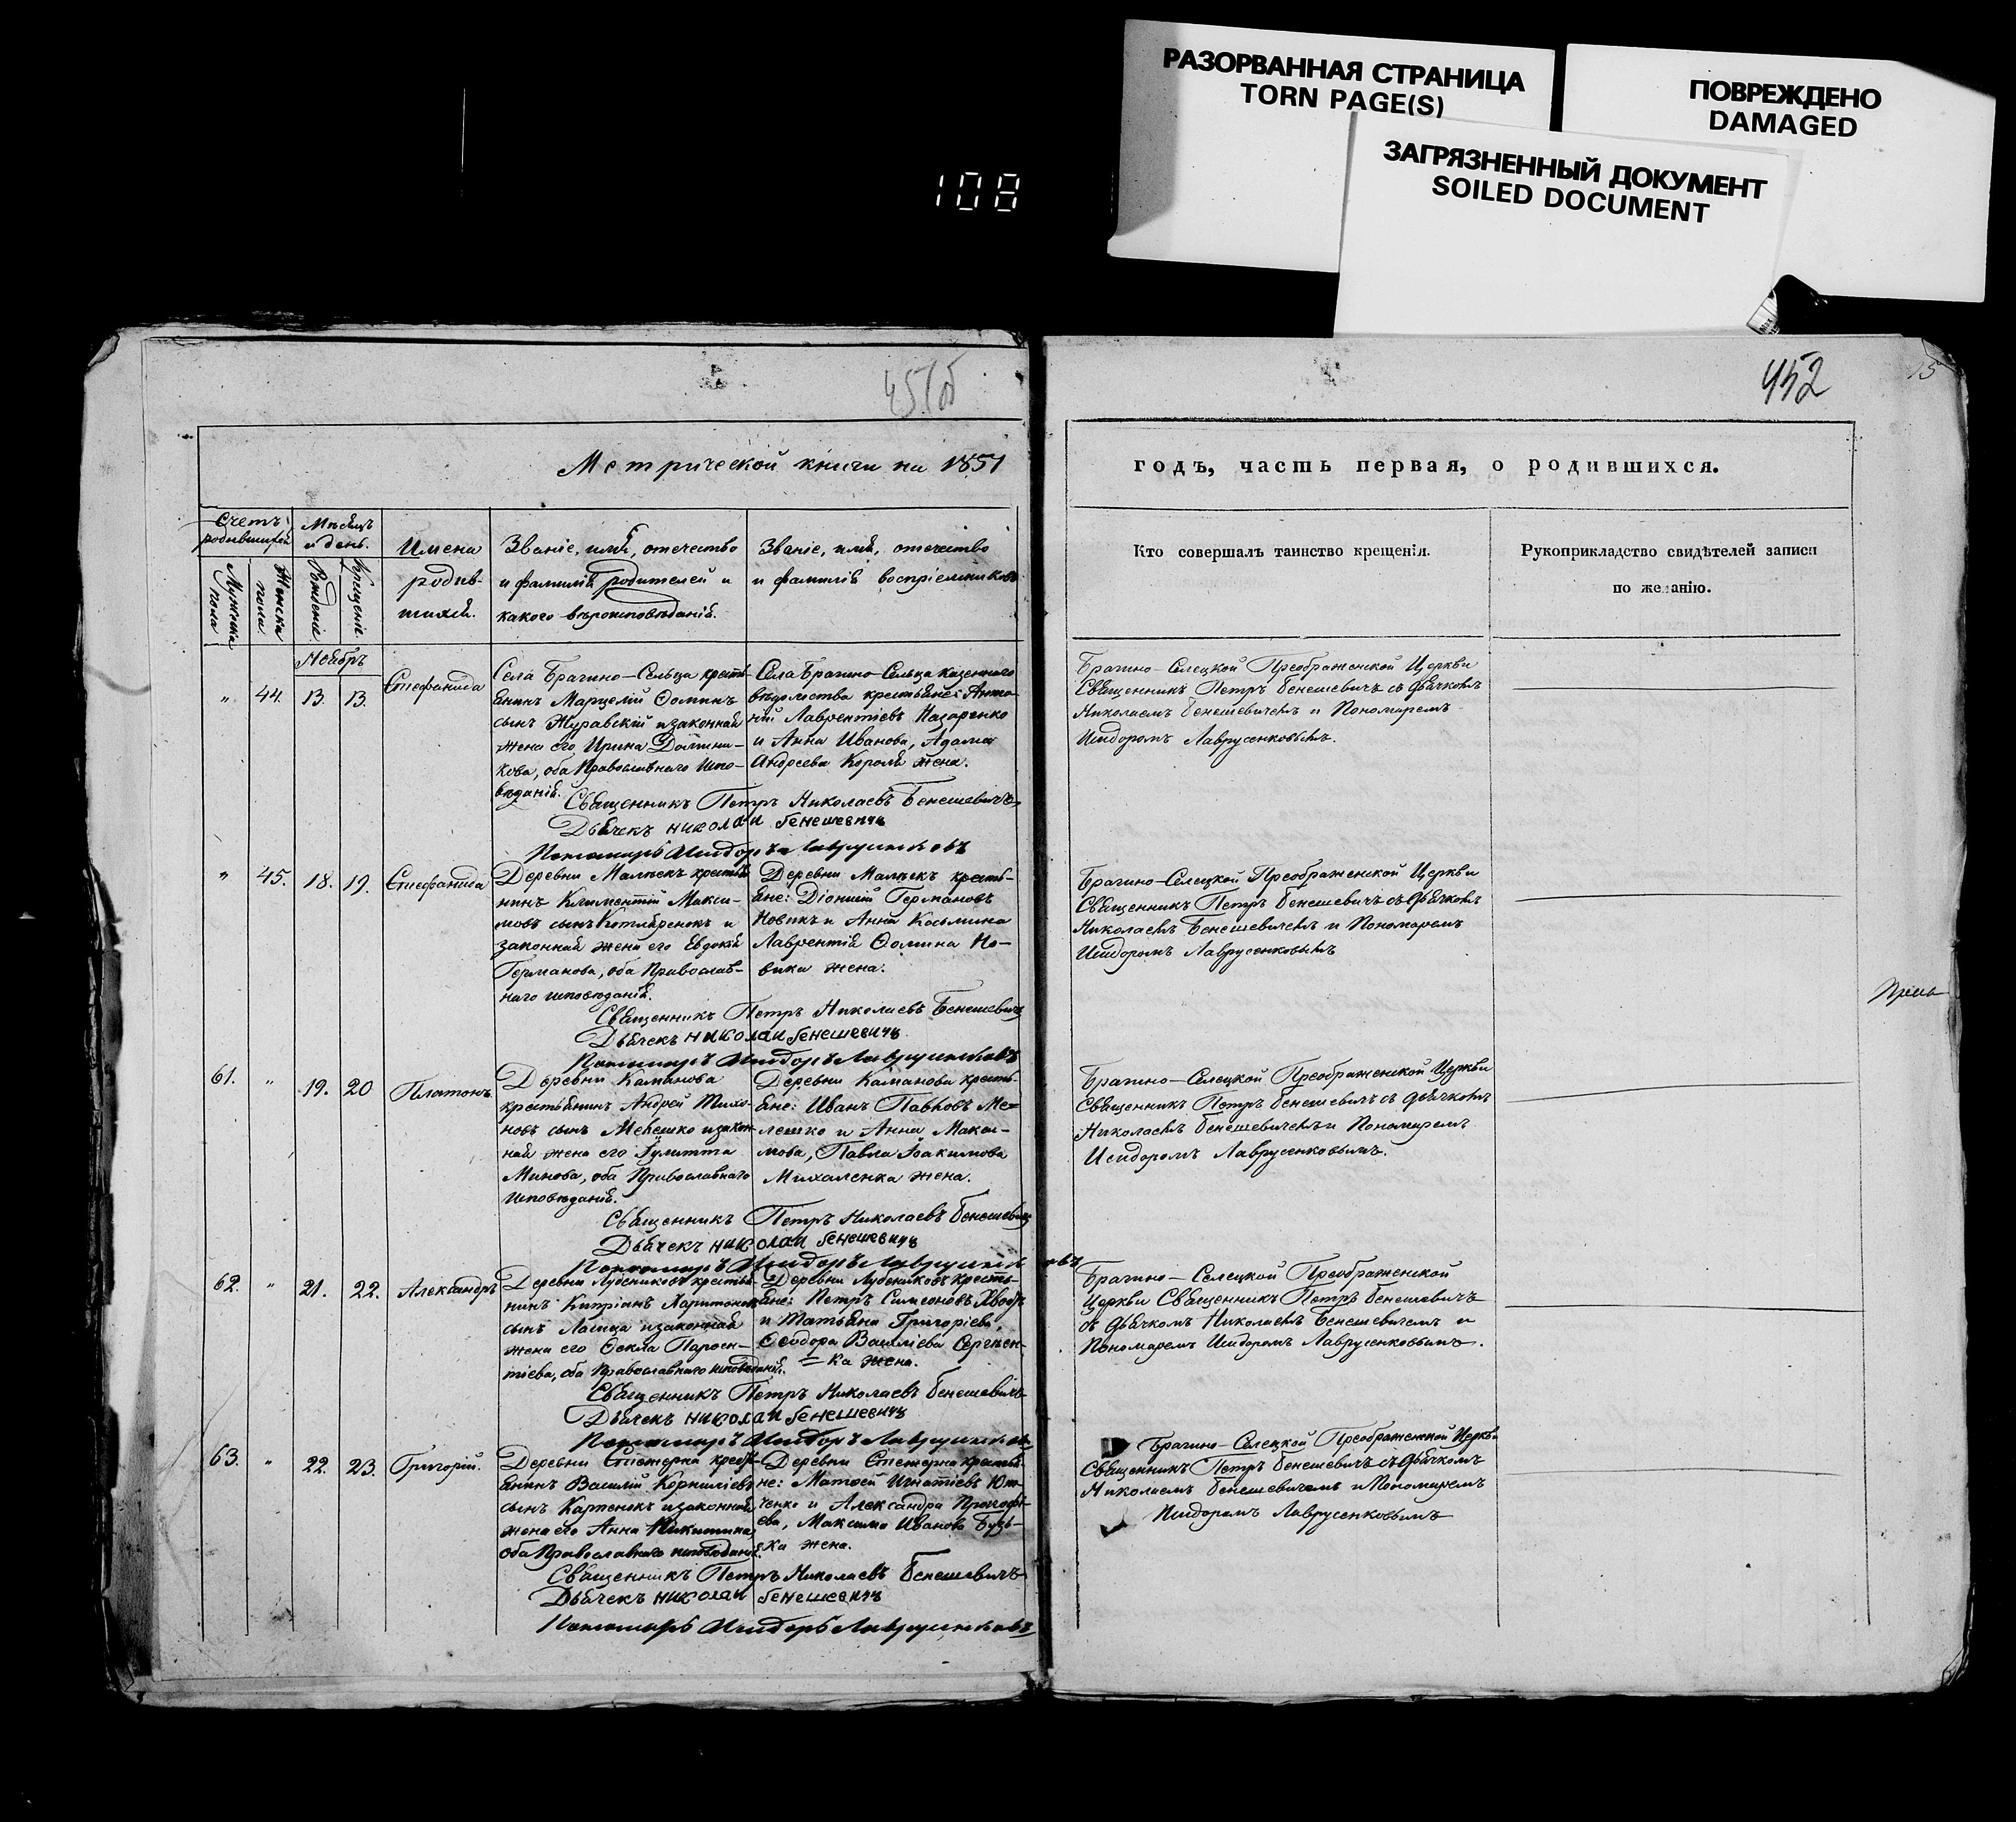 РАЗОРВАННАЯ СТРАНИЦА
TORN PAGE(S)
ПОВРЕЖДЕНО
DAMAGED
ЗАГРЯЗНЕННЫЙ ДОКУМЕНТ
SOILED DOCUMENT
108
452
15
Метрической книги на 1851
годъ, часть первая, о родившихся.
Счетъ родившихся
Мѣсяцъ и день.
Мужеска пола
Женска пола
Рожденіе
Крещеніе
Имена
родив-
шихся.
Званіе, имя, отечество
и фамилія родителей и
какого вѣроисповѣданія.
Званіе, имя, отечество
и фамилія воспріемниковъ
Кто совершалъ таинство крещенія.
Рукоприкладство свидѣтелей записи
по желанію.
Ноябрь
" 44. 13. 13. Стефанида
Села Брагино-Сельца кресть-
янинъ Марцелій Ѳоминъ
сынъ Журавскій и законная
жена его Ирина Домини-
кова, оба Православнаго испо-
вѣданія.
Села Брагино-Сельца казеннаго
вѣдомства крестьяне: Анто-
ній Лаврентіевъ Назаренко
и Анна Иванова, Адама
Андреева Короля жена.
Брагино-Селецкой Преображенской Церкви
Священникъ Петръ Бенешевичъ съ дьячкомъ
Николаемъ Бенешевичемъ и Пономаремъ
Исидоромъ Лаврусенковымъ.
Священникъ Петръ Николаевъ Бенешевичъ
Дьячекъ Николай Бенешевичъ
Пономарь Исидоръ Лаврусенковъ
" 45. 18. 19. Стефанида
Деревни Малѣекъ крестья-
нинъ Климентій Макси-
мовъ сынъ Котляренокъ и
законная жена его Евдокія
Германова, оба Православ-
наго исповѣданія.
Деревни Малѣекъ кресть-
яне: Діонисій Германовъ
Новикъ и Анна Косьмина
Лаврентія Ѳомина Но-
вика жена.
Брагино-Селецкой Преображенской Церкви
Священникъ Петръ Бенешевичъ съ дьячкомъ
Николаемъ Бенешевичемъ и Пономаремъ
Исидоромъ Лаврусенковымъ
Священникъ Петръ Николаевъ Бенешевичъ
Дьячекъ Николай Бенешевичъ
Пономарь Исидоръ Лаврусенковъ
61. " 19. 20 Платонъ
Деревни Каманова
крестьянинъ Андрей Тихо-
новъ сынъ Мелешко и закон-
ная жена его Іулитта
Минова, оба Православнаго
исповѣданія.
Деревни Каманова кресть-
яне: Иванъ Павловъ Ме-
лешко и Анна Макси-
мова, Павла Іоакимова
Михаленка жена.
Брагино-Селецкой Преображенской Церкви
Священникъ Петръ Бенешевичъ съ дьячкомъ
Николаемъ Бенешевичемъ и Пономаремъ
Исидоромъ Лаврусенковымъ.
Священникъ Петръ Николаевъ Бенешевичъ
Дьячекъ Николай Бенешевичъ
Пономарь Исидоръ Лаврусенковъ
62. " 21. 22. Александръ
Деревни Лубениковъ крестья-
нинъ Кипріанъ Харитоновъ
сынъ Лапица и законная
жена его Ѳекла Парѳен-
тіева, оба Православнаго исповѣданія.
Деревни Лубениковъ кресть-
яне: Петръ Симеоновъ Хвощъ
и Татьяна Григоріева,
Ѳеодора Василіева Сергѣен-
ка жена.
Брагино-Селецкой Преображенской
Церкви Священникъ Петръ Бенешевичъ
съ дьячкомъ Николаемъ Бенешевичемъ и
Пономаремъ Исидоромъ Лаврусенковымъ.
Священникъ Петръ Николаевъ Бенешевичъ
Дьячекъ Николай Бенешевичъ
Пономарь Исидоръ Лаврусенковъ
63. " 22. 23. Григорій.
Деревни кресть-
янинъ Василій Корниліевъ
сынъ и законная
жена его Анна Никитина
оба Православнаго исповѣданія.
Деревни крестья-
не: Матѳей Игнатіевъ
и Александра Прокофі-
ева, Максима Иванова
жена.
Брагино-Селецкой Преображенской Церкви
Священникъ Петръ Бенешевичъ съ дьячкомъ
Николаемъ Бенешевичемъ и Пономаремъ
Исидоромъ Лаврусенковымъ
Священникъ Петръ Николаевъ Бенешевичъ
Дьячекъ Николай Бенешевичъ
Пономарь Исидоръ Лаврусенковъ